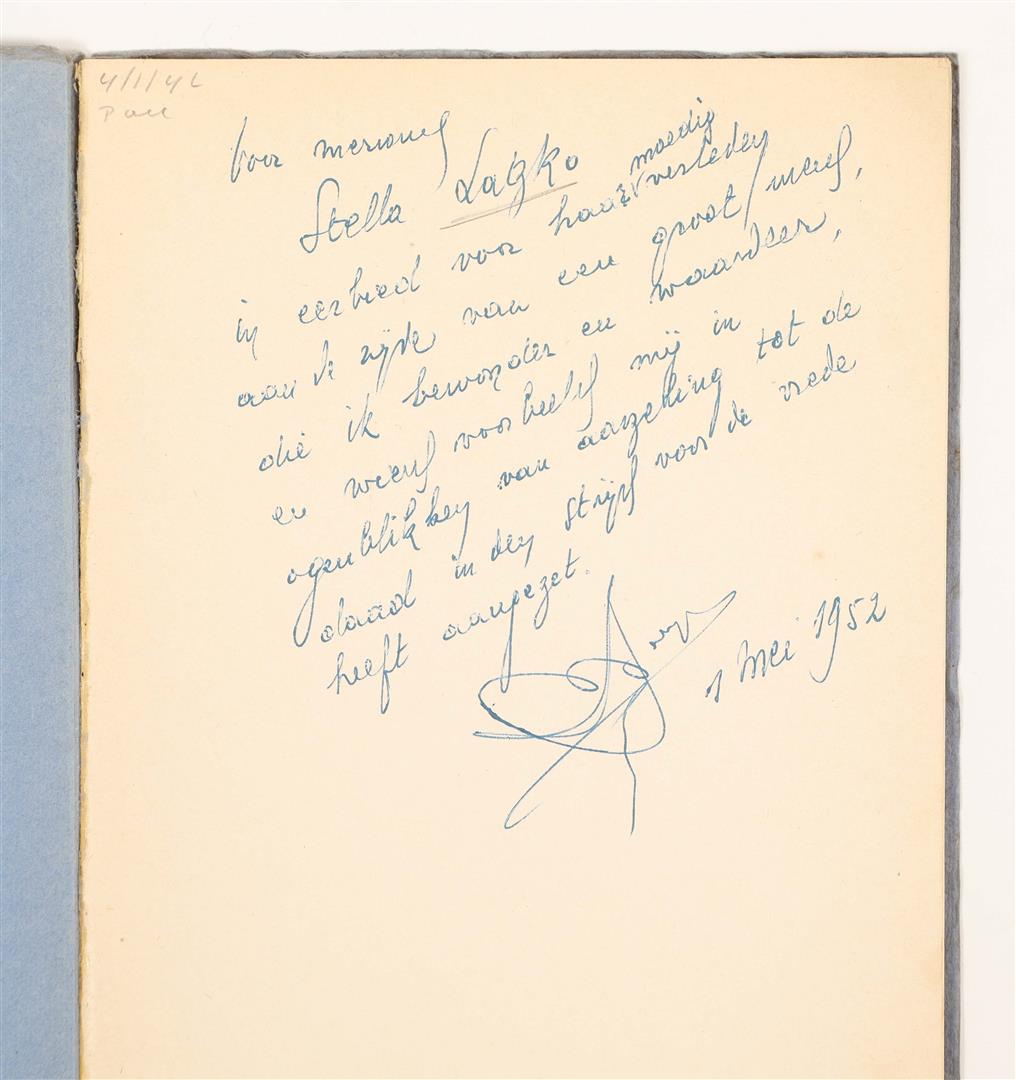 4/1/42
Voor mevrouw
Stella Latzko
in eerbied voor haar moedig verleden
aan de zijde van een groot mens,
die ik bewonder en waardeer,
en wiens voorbeeld mij in
ogenblikken van aarzeling tot de
daad in den strijd voor de vrede
heeft aangezet.
1 Mei 1952